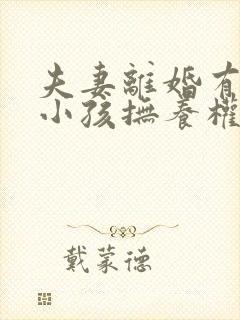 夫妻離婚有
小孩撫養權
戴蒙德